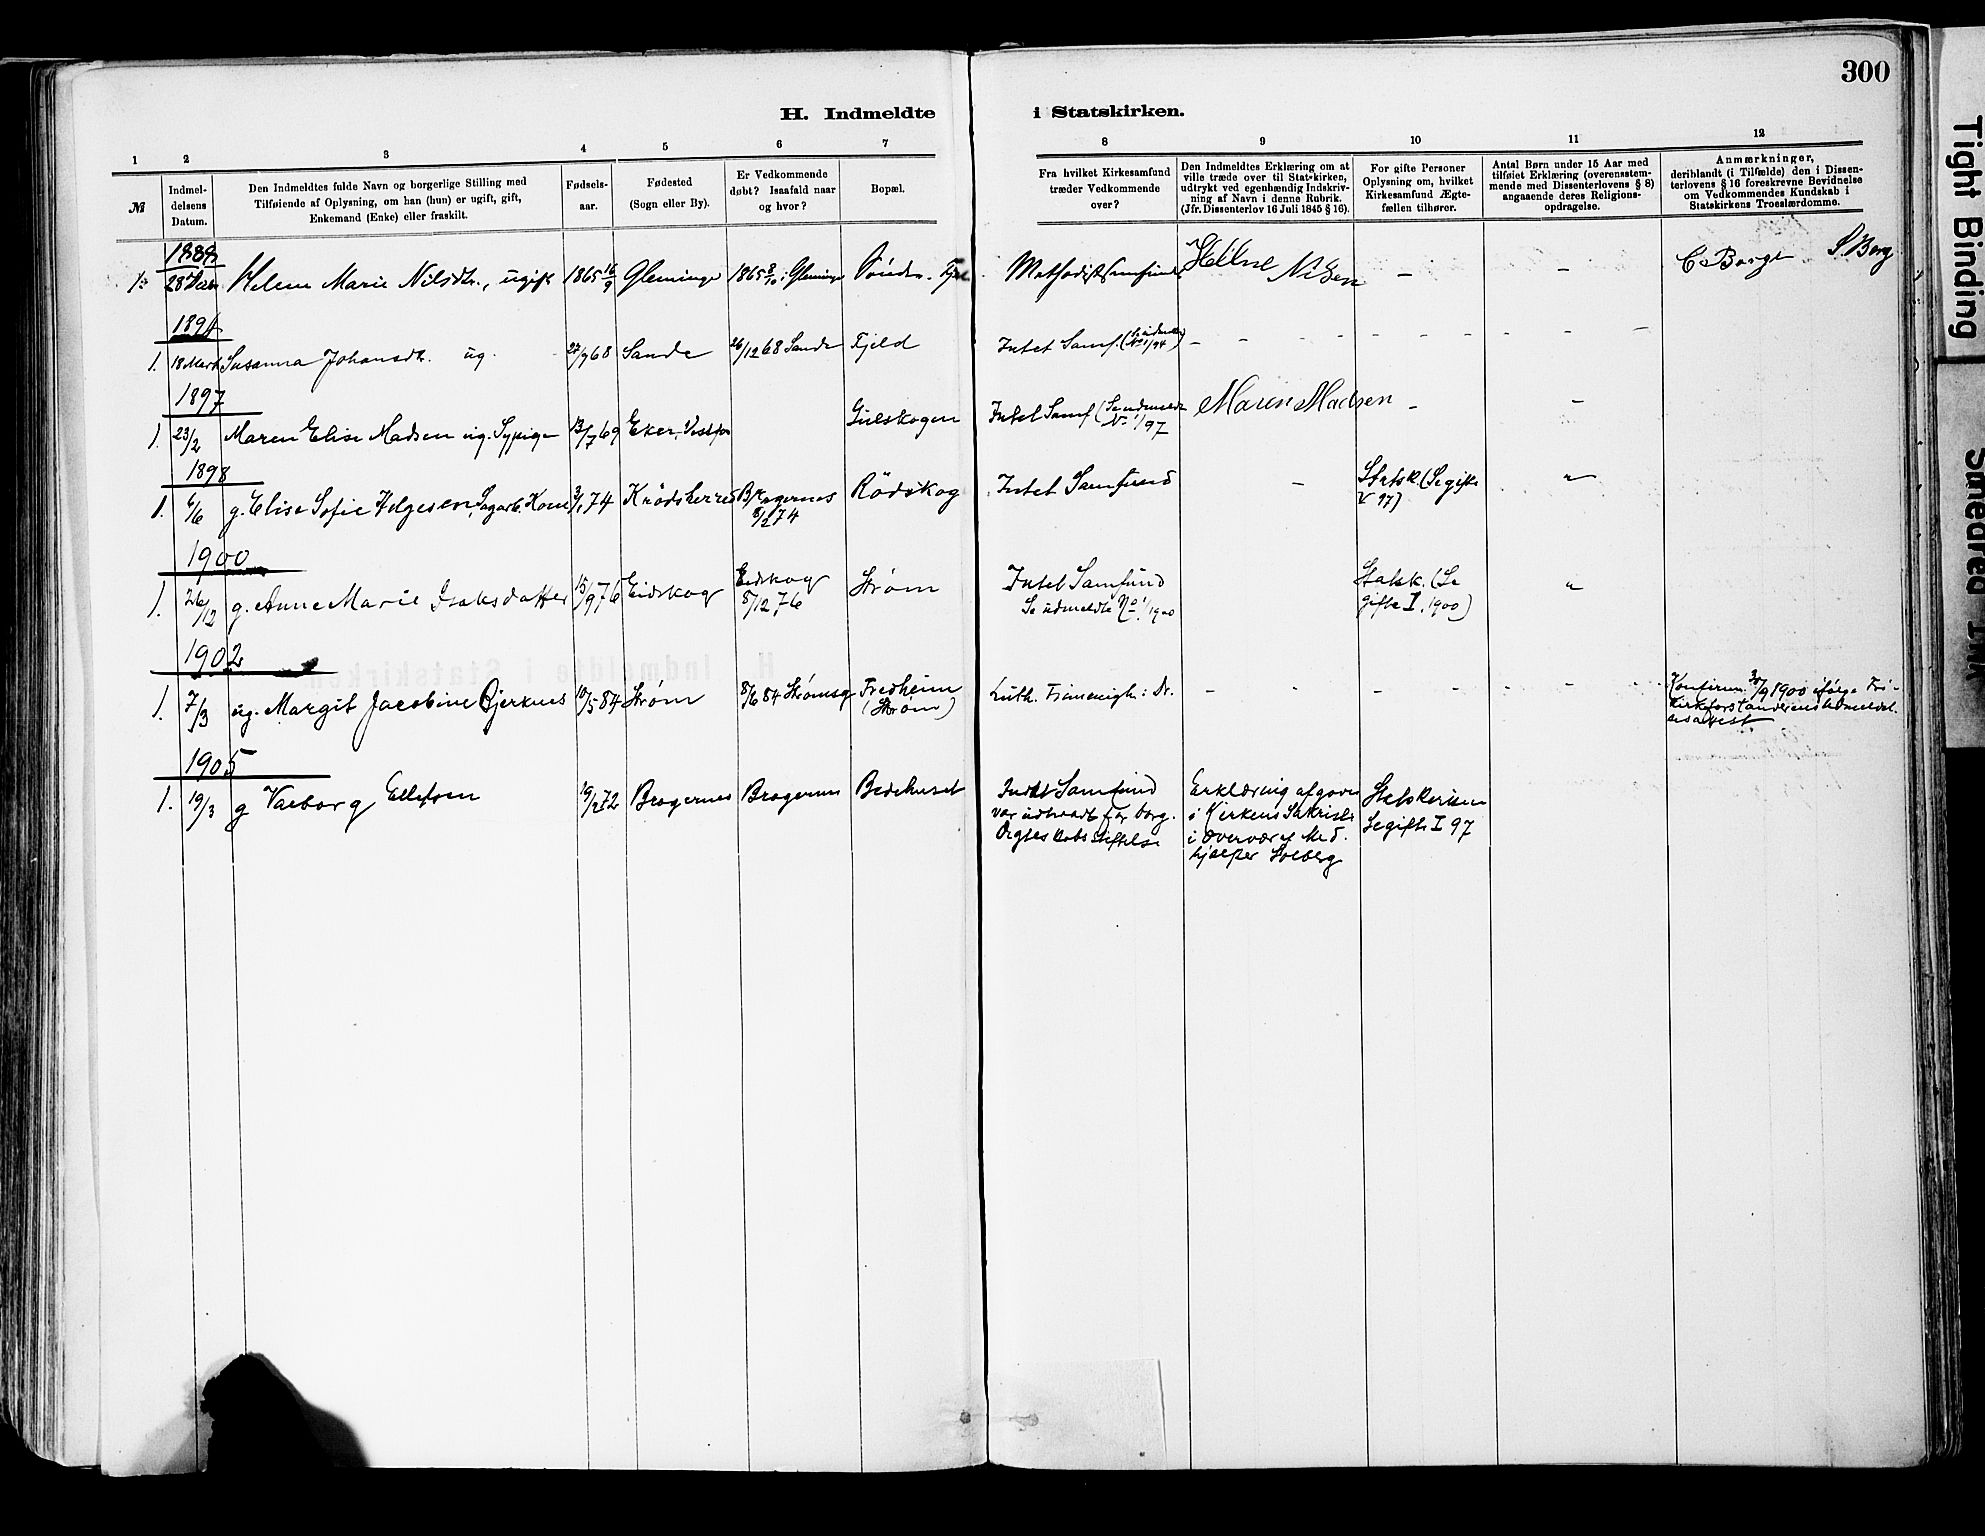 300
Tight Binding
Smeared Ink
H. Indmeldte i Statskirken.
1 2 3 4 5 6 7 8 9 10 11 12
№
Indmel-
delsens
Datum.
Den Indmeldtes fulde Navn og borgerlige Stilling med
Tilføiende af Oplysning, om han (hun) er ugift, gift,
Enkemand (Enke) eller fraskilt.
Fødsels-
aar.
Fødested
(Sogn eller By).
Er Vedkommende
døbt? Isaafald naar
og hvor?
Bopæl.
Fra hvilket Kirkesamfund
træder Vedkommende
over?
Den Indmeldtes Erklæring om at
ville træde over til Stat-kirken,
udtrykt ved egenhændig Indskriv-
ning af Navn i denne Rubrik.
(Jfr. Dissenterlov 16 Juli 1845 § 16).
For gifte Personer
Oplysning om, hvilket
Kirkesamfund Ægte-
fællen tilhører.
Antal Børn under 15 Aar med
tilføiet Erklæring (overensstem-
mende med Dissenterlovens § 8)
angaaende deres Religions-
opdragelse.
Anmærkninger,
deriblandt (i Tilfælde) den i Dissen-
terlovens § 16 foreskrevne Bevidnelse
om Vedkommendes Kundskab i
Statskirkens Troeslærdomme.
1889
1. Helene Marie Nilsdtr., ugift 1865 16/9 Glemminge 1865 8/10 i Glemminge Methodistsamfundet Nilsen - - S. Borg
1894
1. 18 Marts Susanna Johansdtr. ug. 27/9 68 Sande 26/12 68 Sande Fjeld Intet Samf. (Se udmeldte No 1/94) - - - - - - - - -
1897
1. 23/2 Maren Elise Madsen ug. Sypige 13/7 69 Eker, Vestfos Gulskogen Intet Samf (Se udmeldte No 1/97 Maren Madsen - -
1898
1. 6/6 g. Elise Sofie Helgesen, Sagarb. Kone 3/1 74 Krødsherred Bragernes 8/2 74 Rødskog Intet Samfund - Statsk. (Se gifte V 97) "
1900
1. 26/12 g. Anne Marie Isaksdatter 15/9 76 Eidskog Eidskog 8/12 76 Strøm Intet Samfund Statsk. (Se
Se udmeldte No 1/1900 gifte I, 1900) "
1902
1. 7/3 ug. Margit Jacobine Bjerknes 10/5 84 Strøm 8/6 84 Strømsg. Fredheim
(Strøm) Luth. Frimenigh. i Dr. - - - - - - Konfirm. 30/9 1900 ifølge Fri-
kirkeforstanderens Udmeldel-
sesattest
1905
1. 19/3 g Valborg Ellefsen 19/2 72 Bragernes Bragernes Bedehuset Intet Samfund
var udtraadt for borg.
Ægteskabsstiftelse
Erklæring afgiven
i Kirkens Sakristi
i Overvær af Med-
hjælper Solberg
Statskirken
Se gifte I 97